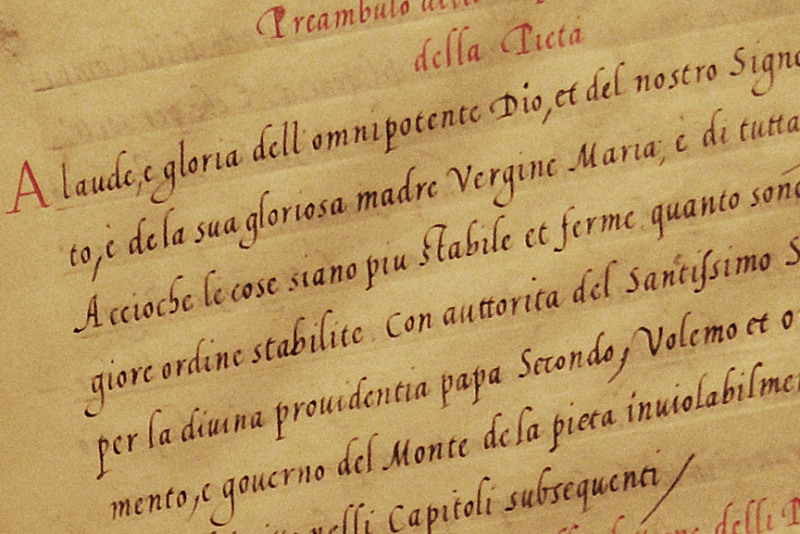 Preambulo
della Pietà
A laude, e gloria dell'omnipotente Dio, et del nostro Signo
to, è de la sua gloriosa madre Vergine Maria, è di tutta
Accioche le cose siano piu stabile et ferme quanto sono
giore ordine stabilite Con auttorita del Santissimo S
per la diuina prouidentia papa Secondo, Volemo et o
mento, e gouerno del Monte de la pieta inuiolabilme
nelli Capitoli subsequenti
delli